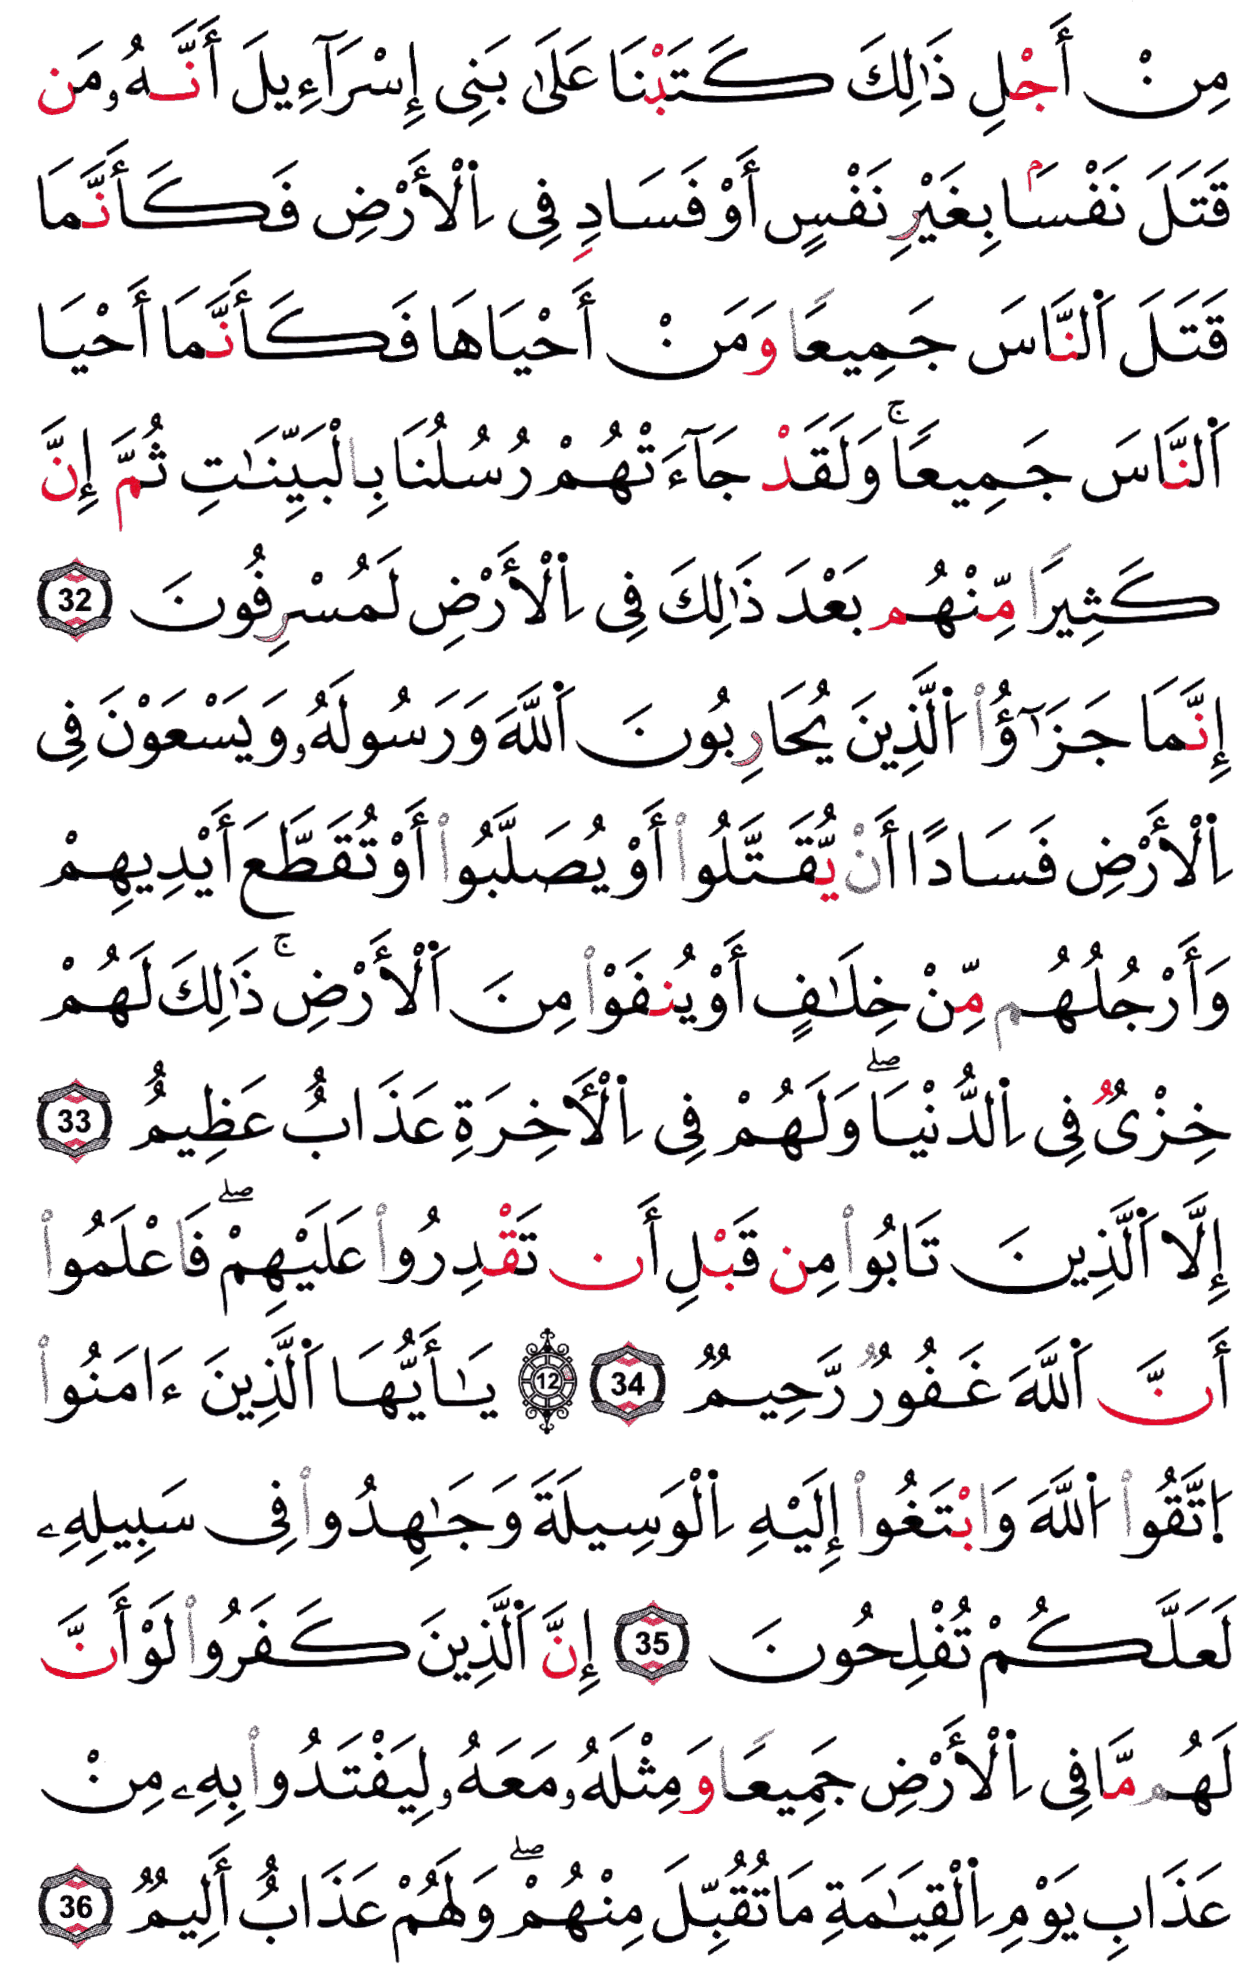 مِنْ أَجْلِ ذَٰلِكَ كَتَبْنَا عَلَىٰ بَنِى إِسْرَآءِيلَ أَنَّهُۥ مَن
قَتَلَ نَفْسَۢا بِغَيْرِ نَفْسٍ أَوْ فَسَادٍ فِى اِ۬لْأَرْضِ فَكَأَنَّمَا
قَتَلَ اَ۬لنَّاسَ جَمِيعًا وَمَنْ أَحْيَاهَا فَكَأَنَّمَا أَحْيَا
اَ۬لنَّاسَ جَمِيعًا ۚ وَلَقَدْ جَآءَتْهُمْ رُسُلُنَا بِالْبَيِّنَٰتِ ثُمَّ إِنَّ
كَثِيرًا مِّنْهُم بَعْدَ ذَٰلِكَ فِى اِ۬لْأَرْضِ لَمُسْرِفُونَ 32
إِنَّمَا جَزَٰٓؤُا۟ اُ۬لَّذِينَ يُحَارِبُونَ اَ۬للَّهَ وَرَسُولَهُۥ وَيَسْعَوْنَ فِى
اِ۬لْأَرْضِ فَسَادًا أَنْ يُّقَتَّلُوا۟ أَوْ يُصَلَّبُوا۟ أَوْ تُقَطَّعَ أَيْدِيهِمْ
وَأَرْجُلُهُم مِّنْ خِلَٰفٍ أَوْ يُنفَوْا۟ مِنَ اَ۬لْأَرْضِ ۚ ذَٰلِكَ لَهُمْ
خِزْىٌ فِى اِ۬لدُّنْيَا ۖ وَلَهُمْ فِى اِ۬لْأَخِرَةِ عَذَابٌ عَظِيمٌ 33
إِلَّا اَ۬لَّذِينَ تَابُوا۟ مِن قَبْلِ أَن تَقْدِرُوا۟ عَلَيْهِمْ ۖ فَاعْلَمُوا۟
أَنَّ اَ۬للَّهَ غَفُورٌ رَّحِيمٌ 34 12 يَٰأَيُّهَا اَ۬لَّذِينَ ءَامَنُوا۟
اِ۪تَّقُوا۟ اُ۬للَّهَ وَابْتَغُوا۟ إِلَيْهِ اِ۬لْوَسِيلَةَ وَجَٰهِدُوا۟ فِى سَبِيلِهِۦ
لَعَلَّكُمْ تُفْلِحُونَ 35 إِنَّ اَ۬لَّذِينَ كَفَرُوا۟ لَوْ أَنَّ
لَهُم مَّا فِى اِ۬لْأَرْضِ جَمِيعًا وَمِثْلَهُۥ مَعَهُۥ لِيَفْتَدُوا۟ بِهِۦ مِنْ
عَذَابِ يَوْمِ اِ۬لْقِيَٰمَةِ مَا تُقُبِّلَ مِنْهُمْ ۖ وَلَهُمْ عَذَابٌ أَلِيمٌ 36